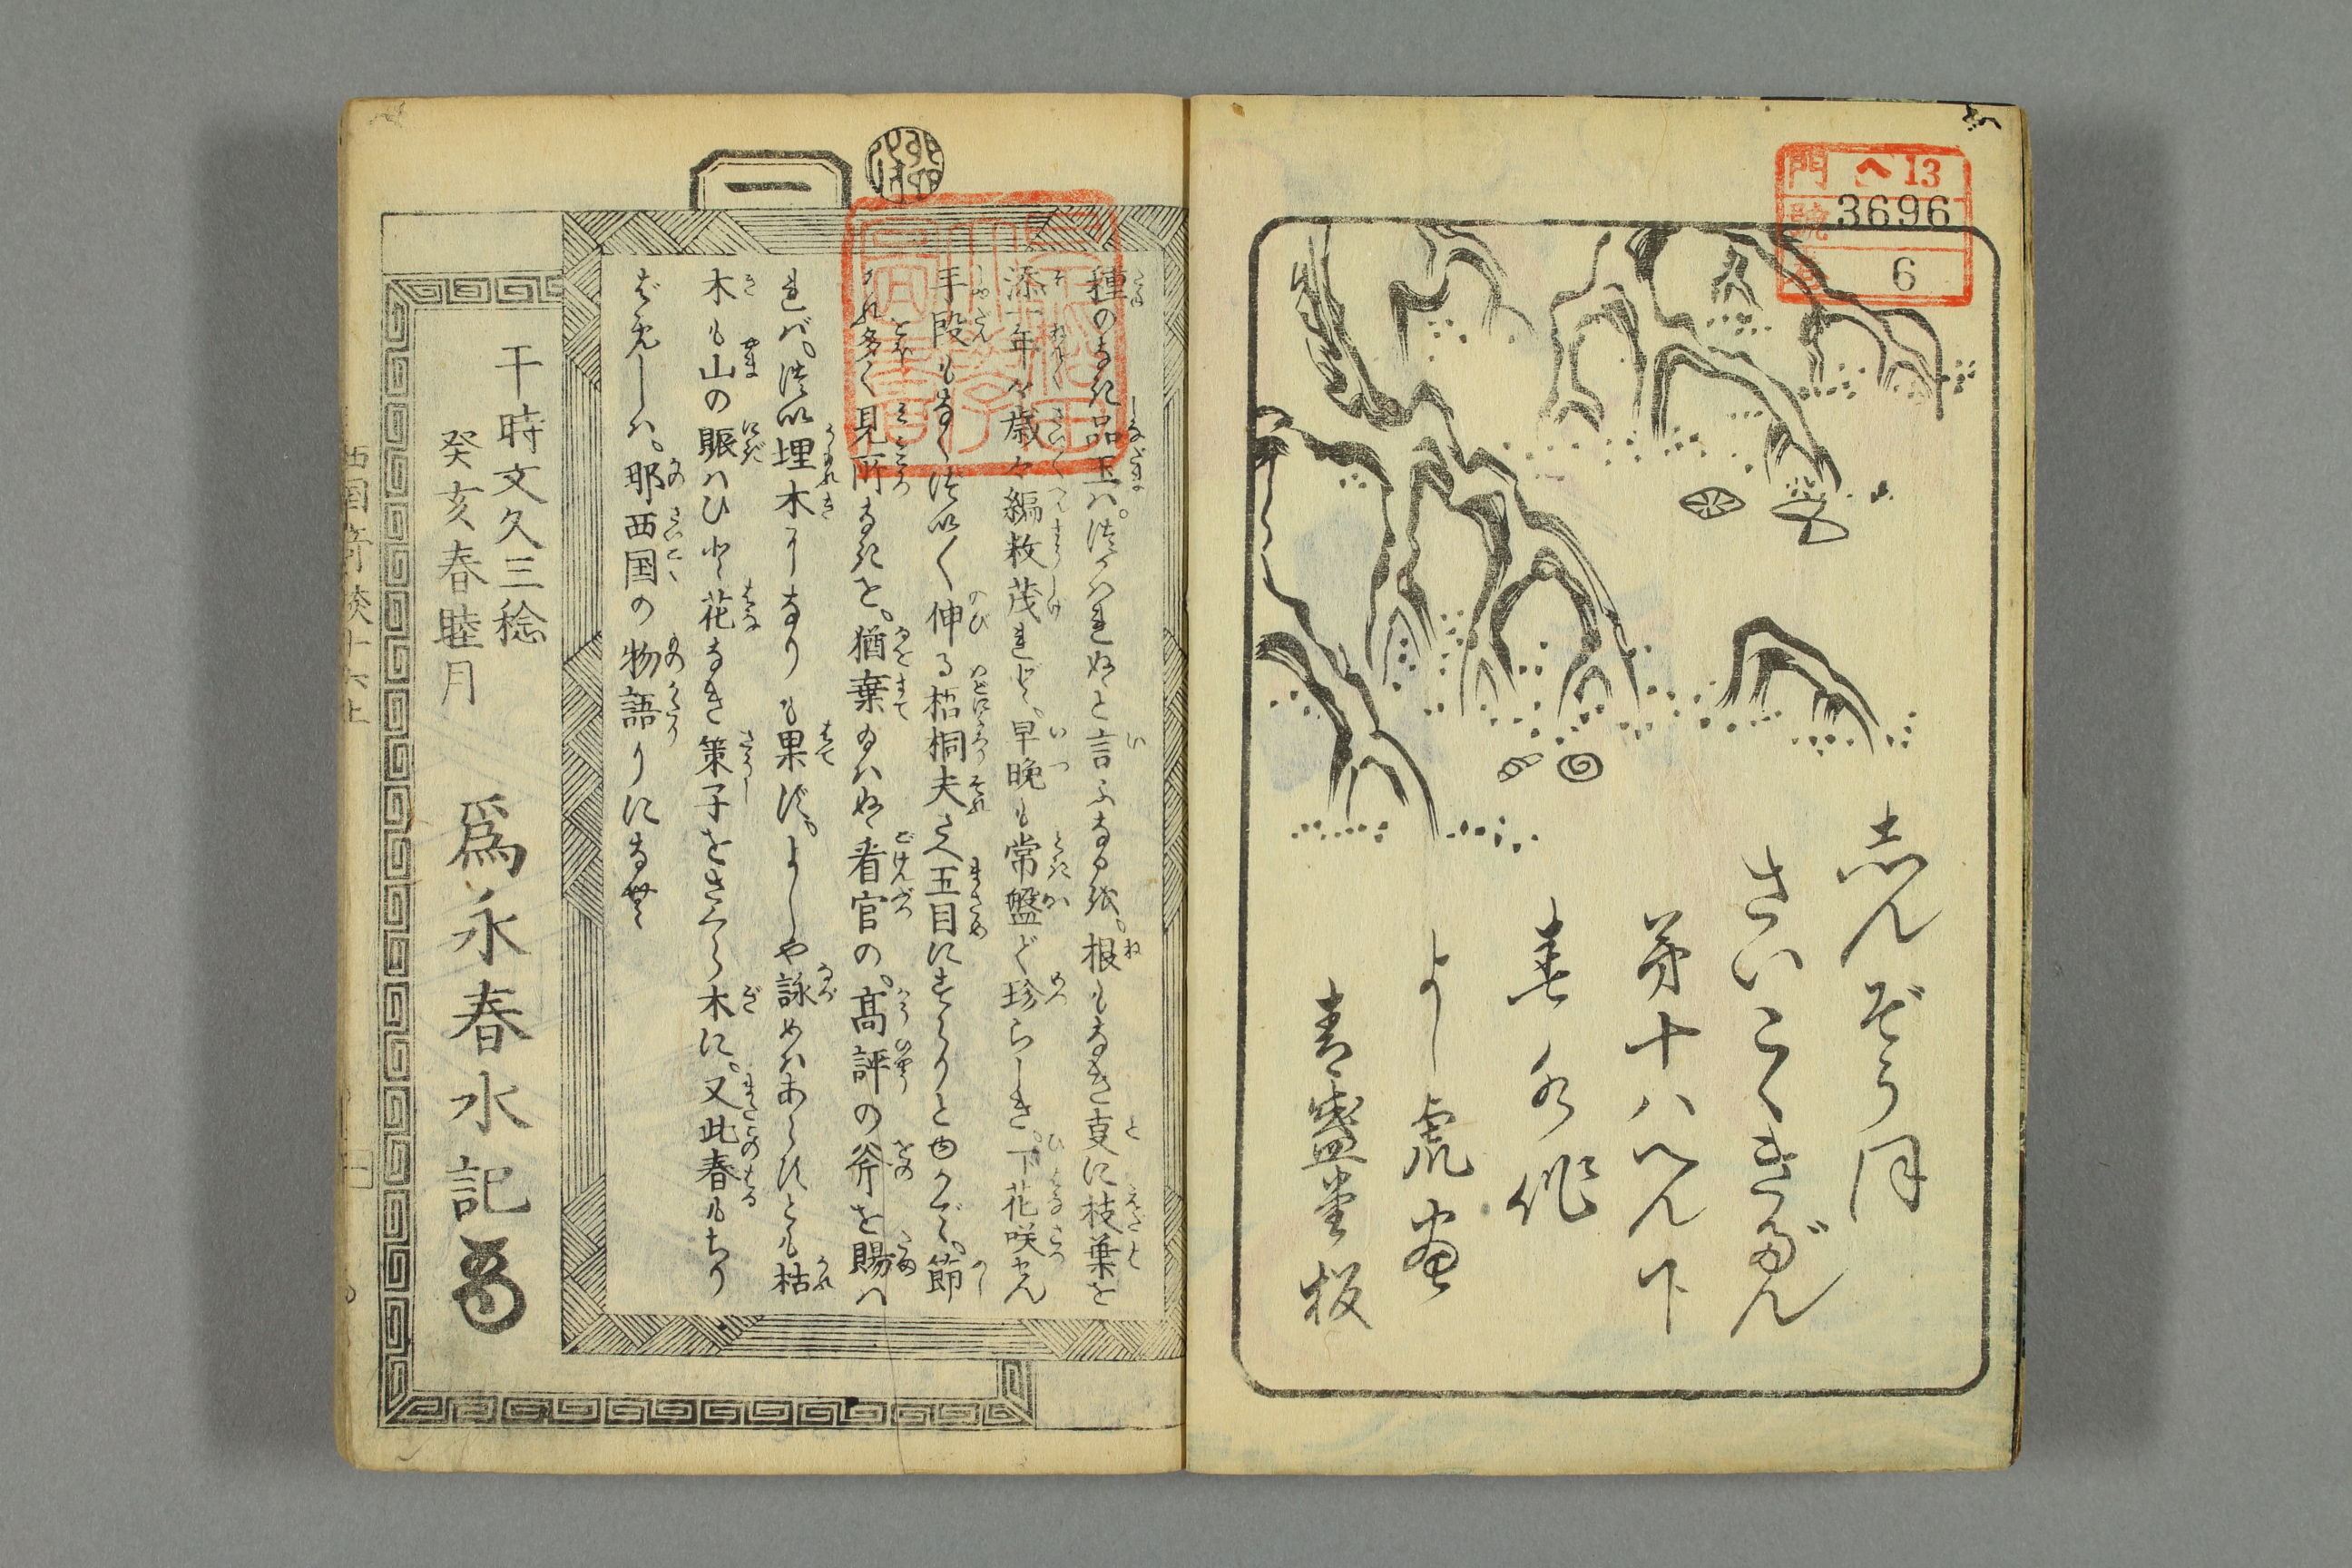 門 ヘ13
號 3696
卷 6
志んぞう月
さいこくきだん
第十八へん下
春水作
よし虎画
青盛堂板
一
種のなき品玉ハ。つかハれぬと言ふなるが。根もなき夏に枝葉を
添。年々歳々編数茂れど。早晩も常盤ど珍らしき。下花咲せん
手段もなく。伸る梧桐夫さへ五目にすらりとゆかで。節
くれ多く見所なきを。猶棄給ハぬ看官の。高評の斧を賜ハ
れバ。埋木となりも果ず。よしや詠めハあらずとも枯
木も山の賑ハひと花なき策子をさくら木に。又此春もちり
ばめしハ。耶西国の物語りになむ
干時文久三稔
癸亥春睦月
為永春水記
西国奇談十八上